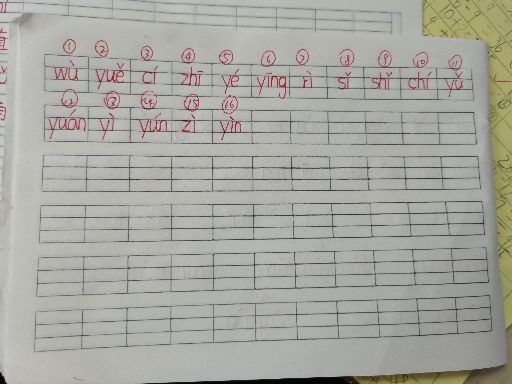 ① ② ③ ④ ⑤ ⑥ ⑦ ⑧ ⑨ ⑩ ⑪
wù yuě cí zhī yé yīng rì sǐ shǐ chí yǔ
⑫ ⑬ ⑭ ⑮ ⑯
yuán yì yún zì yìn